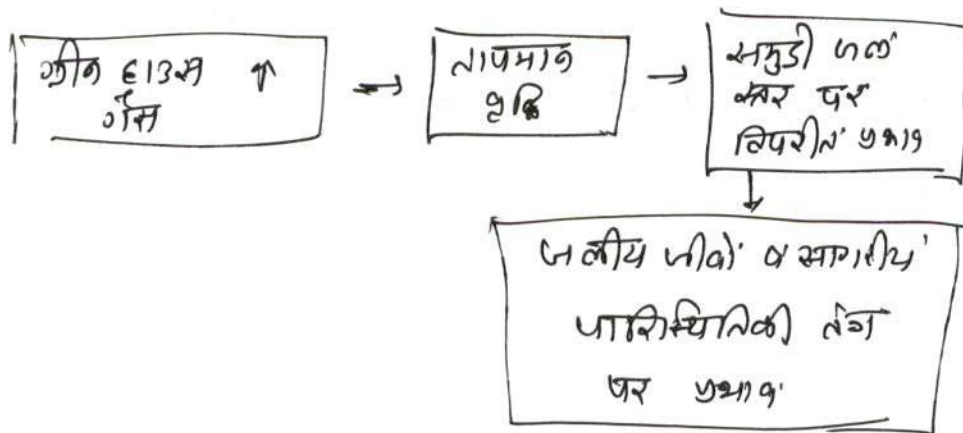 ग्रीन हाउस ↑
गैस
→
तापमान
वृद्धि
→
समुद्री जल
स्तर पर
विपरीत प्रभाव
↓
जलीय जीवों व सागरीय
पारिस्थितिकी तंत्र
पर प्रभाव